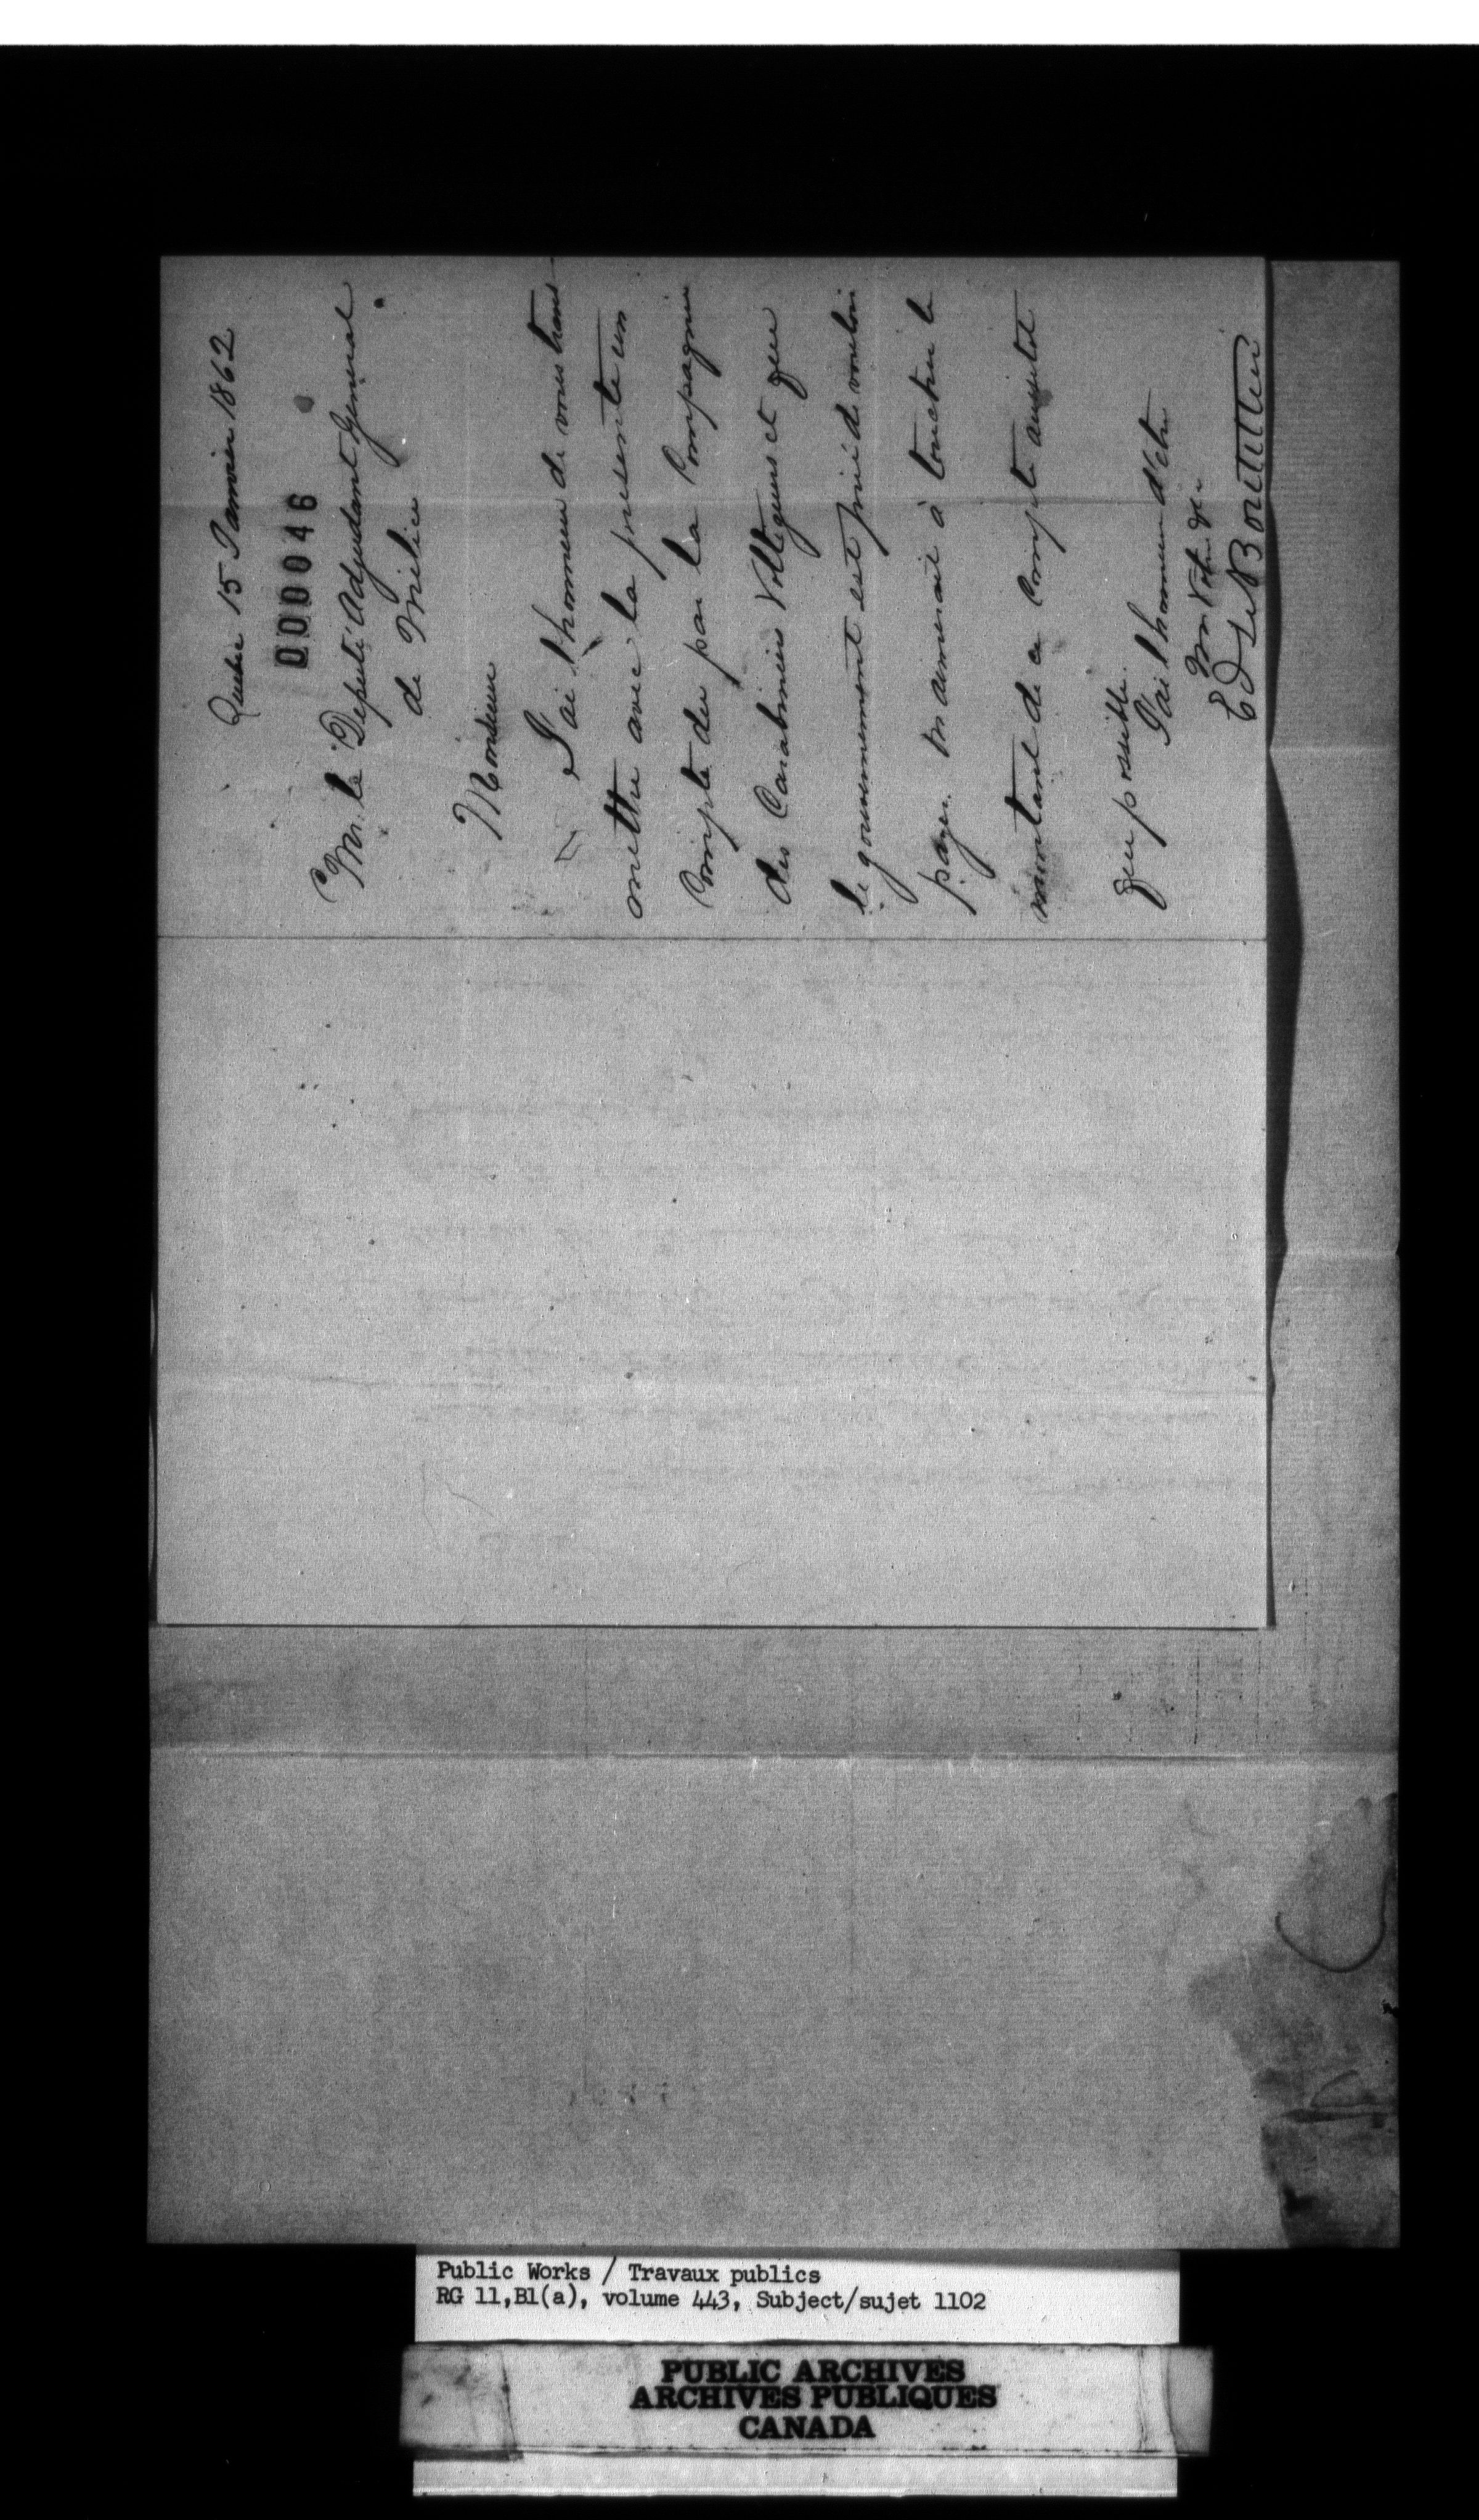 Quebec 15 Janvier 1862
000046
Mr. le Député Adjudant General
de Milice
Monsieur
J'ai l'honneur de vous trans
mettre avec la presente un
Compte du par la Compagnie
des Carabiniers Voltigeurs et que
le gouvernement est prié de vouloir
payer. M aimerait à toucher le
montant de ce Compte aussitot
que possible.
J'ai l'honneur d'etre
Mr Votre &c
Ed Le Bouttillier
Public Works / Travaux publics
RG 11,B1(a), volume 443, Subject/sujet 1102
PUBLIC ARCHIVES
ARCHIVES PUBLIQUES
CANADA